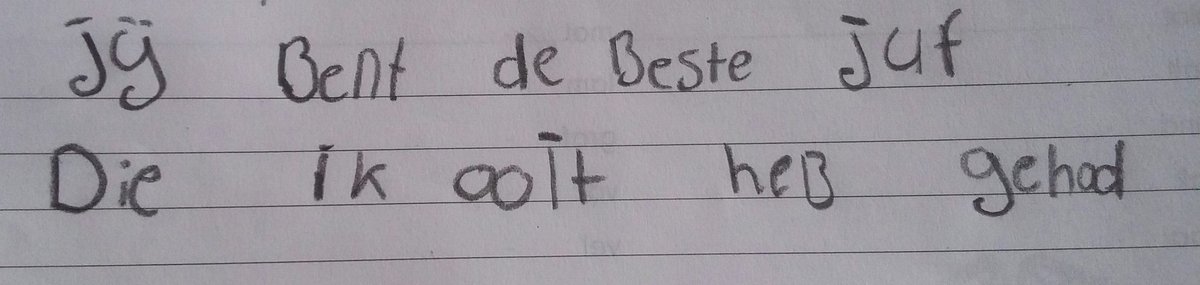 jÿ Bent de Beste juf
Die ik ooit heB gehad